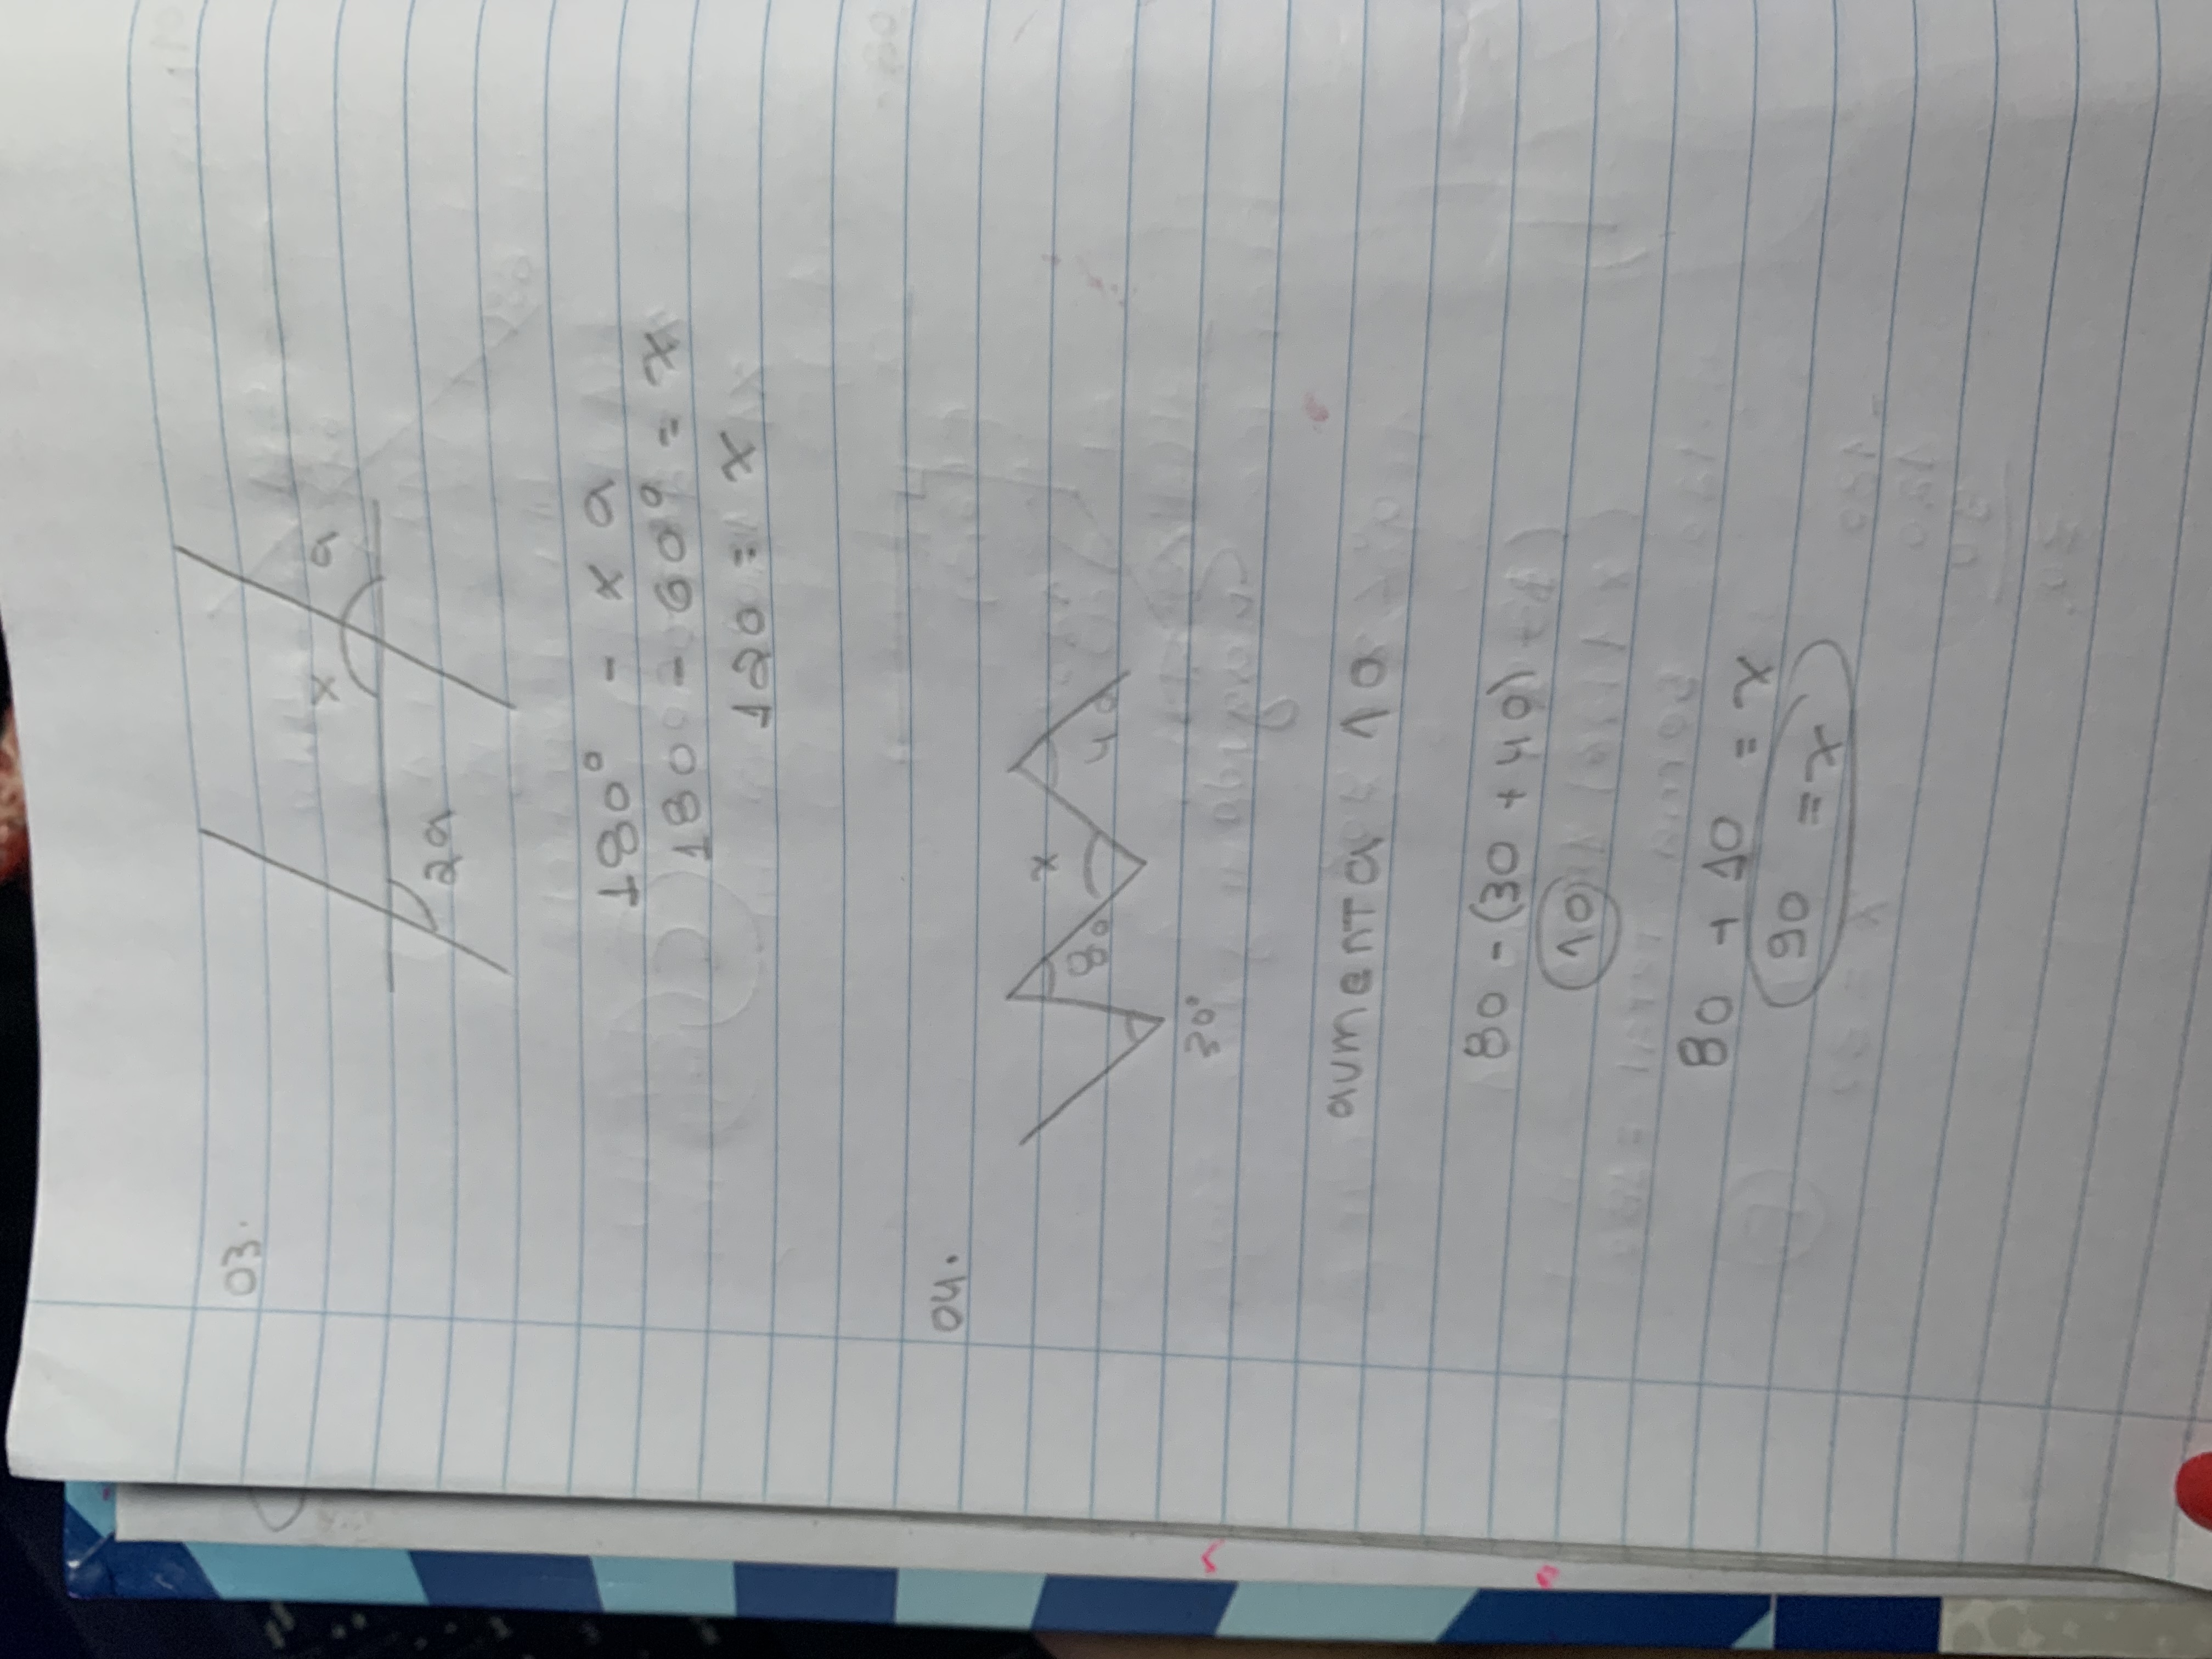 03.
x a
2a
180° - x a
180 - 60° = x
120 = x
04.
x
80 40
30°
aumenta 10
80 - (30 + 40)
10
80 + 10 = x
90 = x